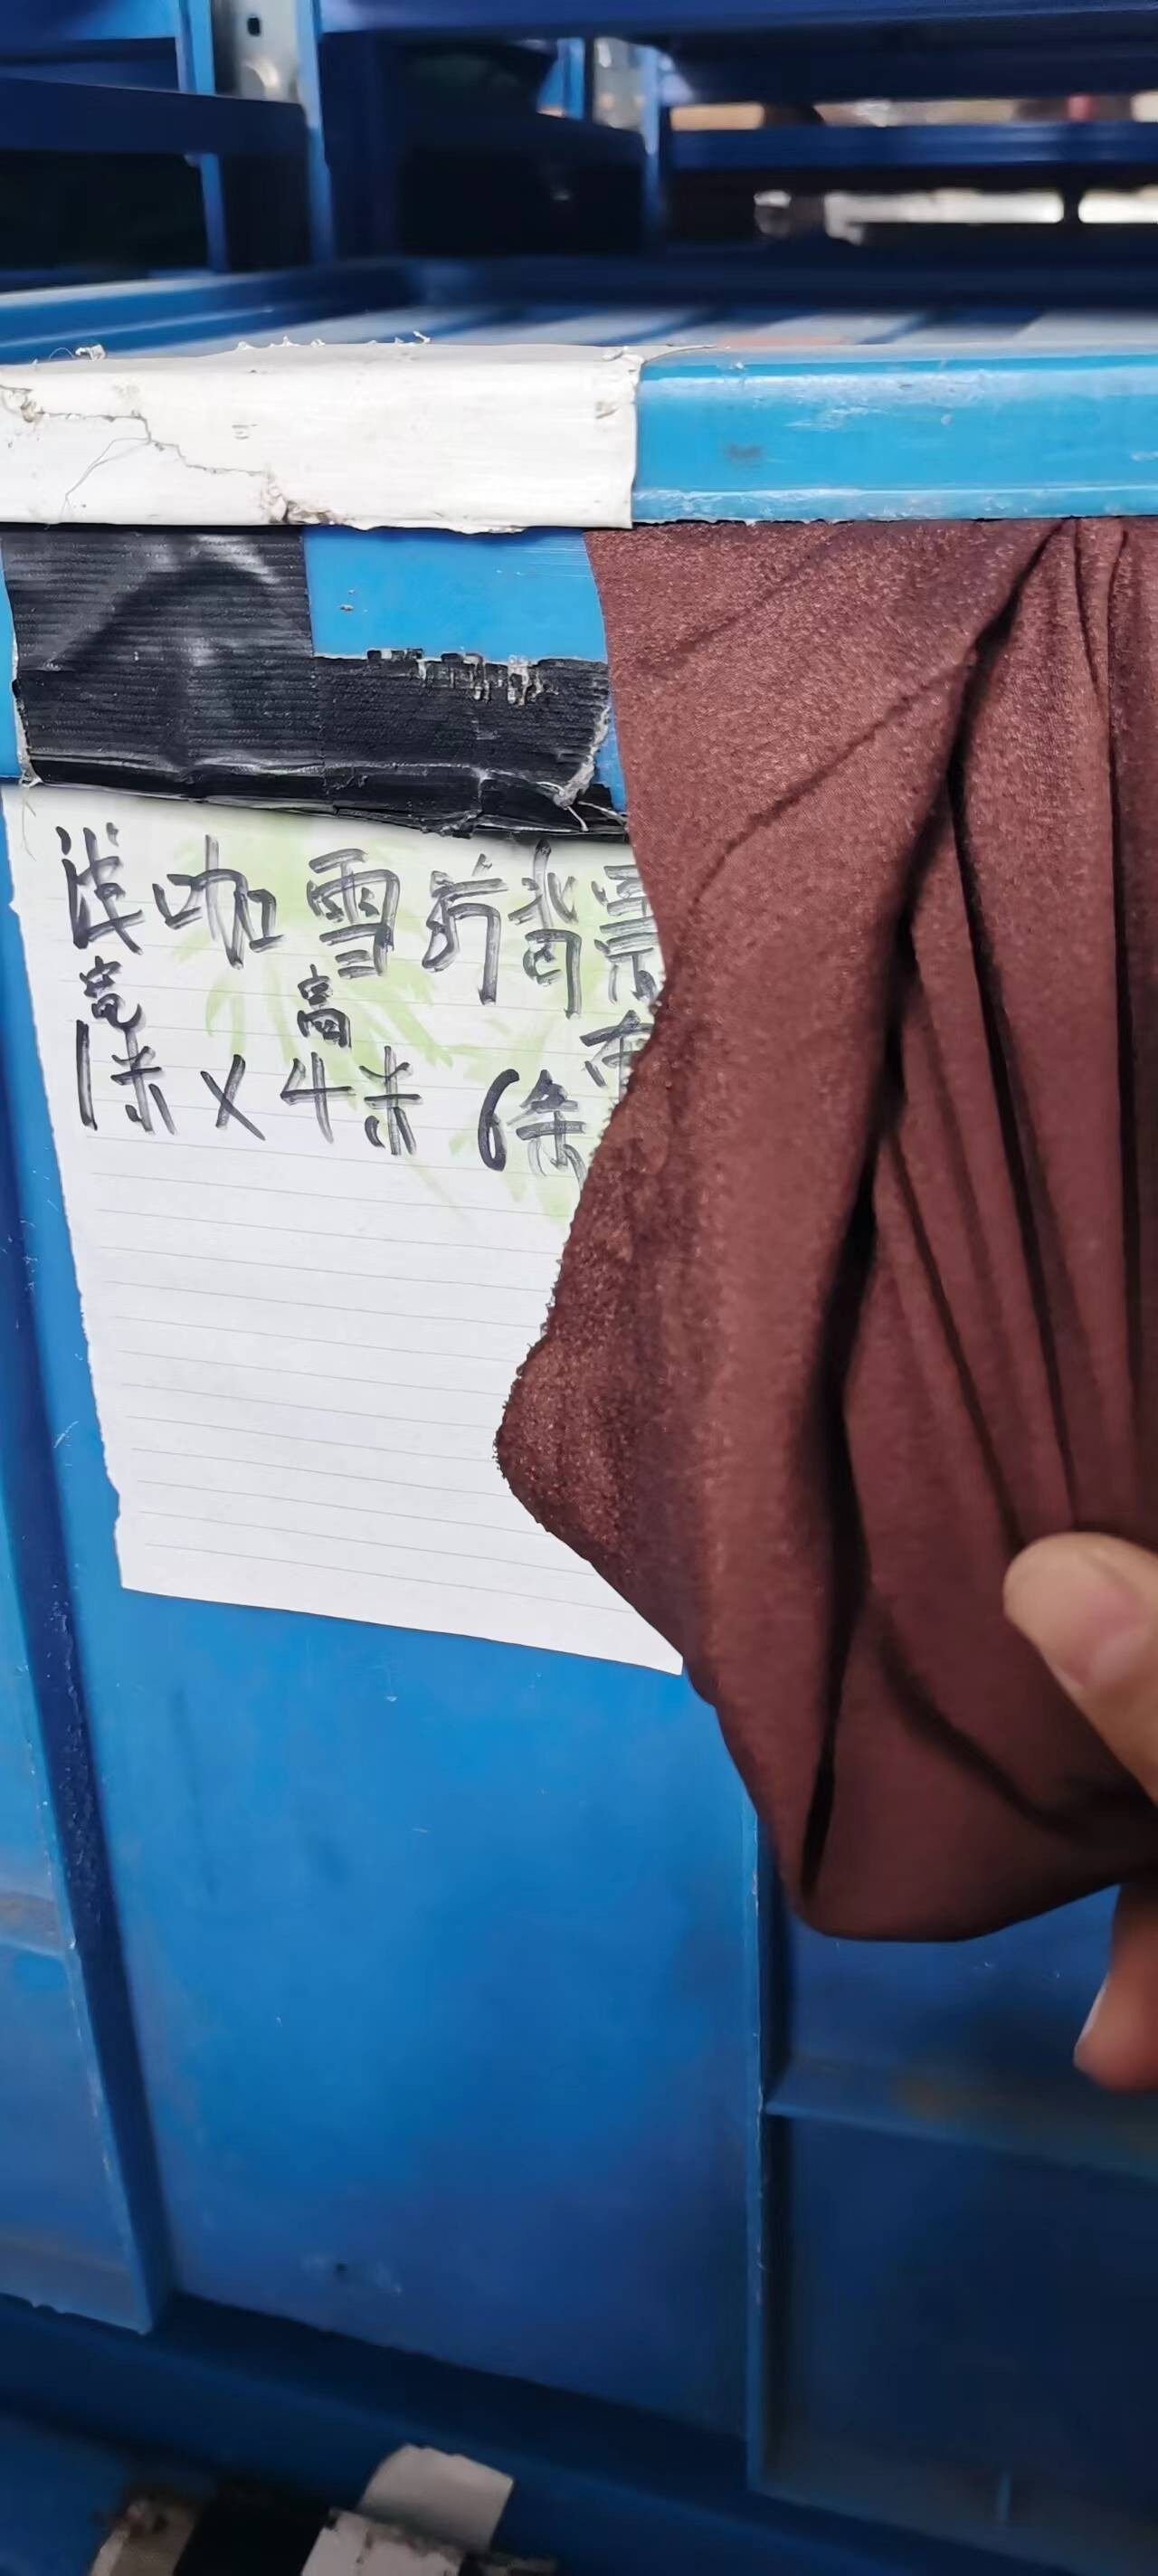 浅咖雪纺背景
宽 高 布
1米 X 4米 6条